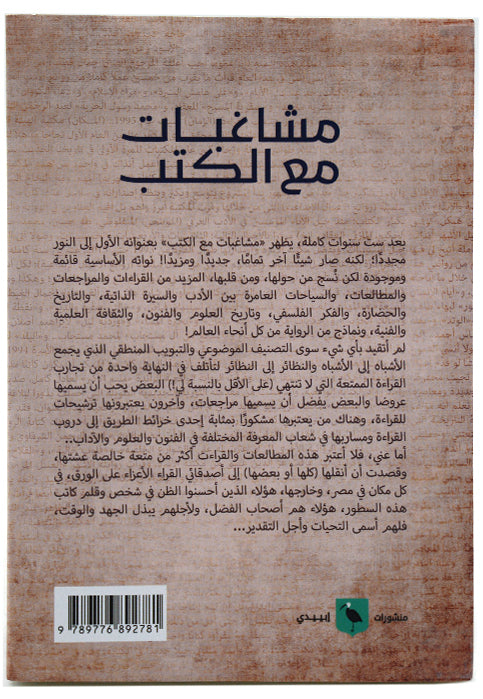 مشاغبات
مع الكتب
بعد ست سنوات كاملة، يظهر «مشاغبات مع الكتب» بعنوانه الأول إلى النور
مجددًا؛ لكنه صار شيئًا آخر تمامًا، جديدًا ومزيدًا! نواته الأساسية قائمة
وموجودة لكن نُسج من حولها، ومن قلبها، المزيد من القراءات والمراجعات
والمطالعات، والسياحات العامرة بين الأدب والسيرة الذاتية، والتاريخ
والحضارة، والفكر الفلسفي، وتاريخ العلوم والفنون، والثقافة العلمية
والفنية، ونماذج من الرواية من كل أنحاء العالم!
لم أتقيد بأي شيء سوى التصنيف الموضوعي والتبويب المنطقي الذي يجمع
الأشباه إلى الأشباه والنظائر إلى النظائر لتأتلف في النهاية واحدة من تجارب
القراءة الممتعة التي لا تنتهي (على الأقل بالنسبة لي!) البعض يحب أن يسميها
عروضا والبعض يفضل أن يسميها مراجعات، وآخرون يعتبرونها ترشيحات
للقراءة، وهناك من يعتبرها مشكورًا بمثابة إحدى خرائط الطريق إلى دروب
القراءة ومساربها في شعاب المعرفة المختلفة في الفنون والعلوم والآداب..
أما عني، فلا أعتبر هذه المطالعات والقراءات أكثر من متعة خالصة عشتها،
وقصدت أن أنقلها (كلها أو بعضها) إلى أصدقائي القراء الأعزاء على الورق، في
كل مكان في مصر، وخارجها، هؤلاء الذين أحسنوا الظن في شخص وقلم كاتب
هذه السطور، هؤلاء هم أصحاب الفضل، ولأجلهم يبذل الجهد والوقت،
فلهم أسمى التحيات وأجل التقدير...
منشورات إبييدي
9 789776 892781